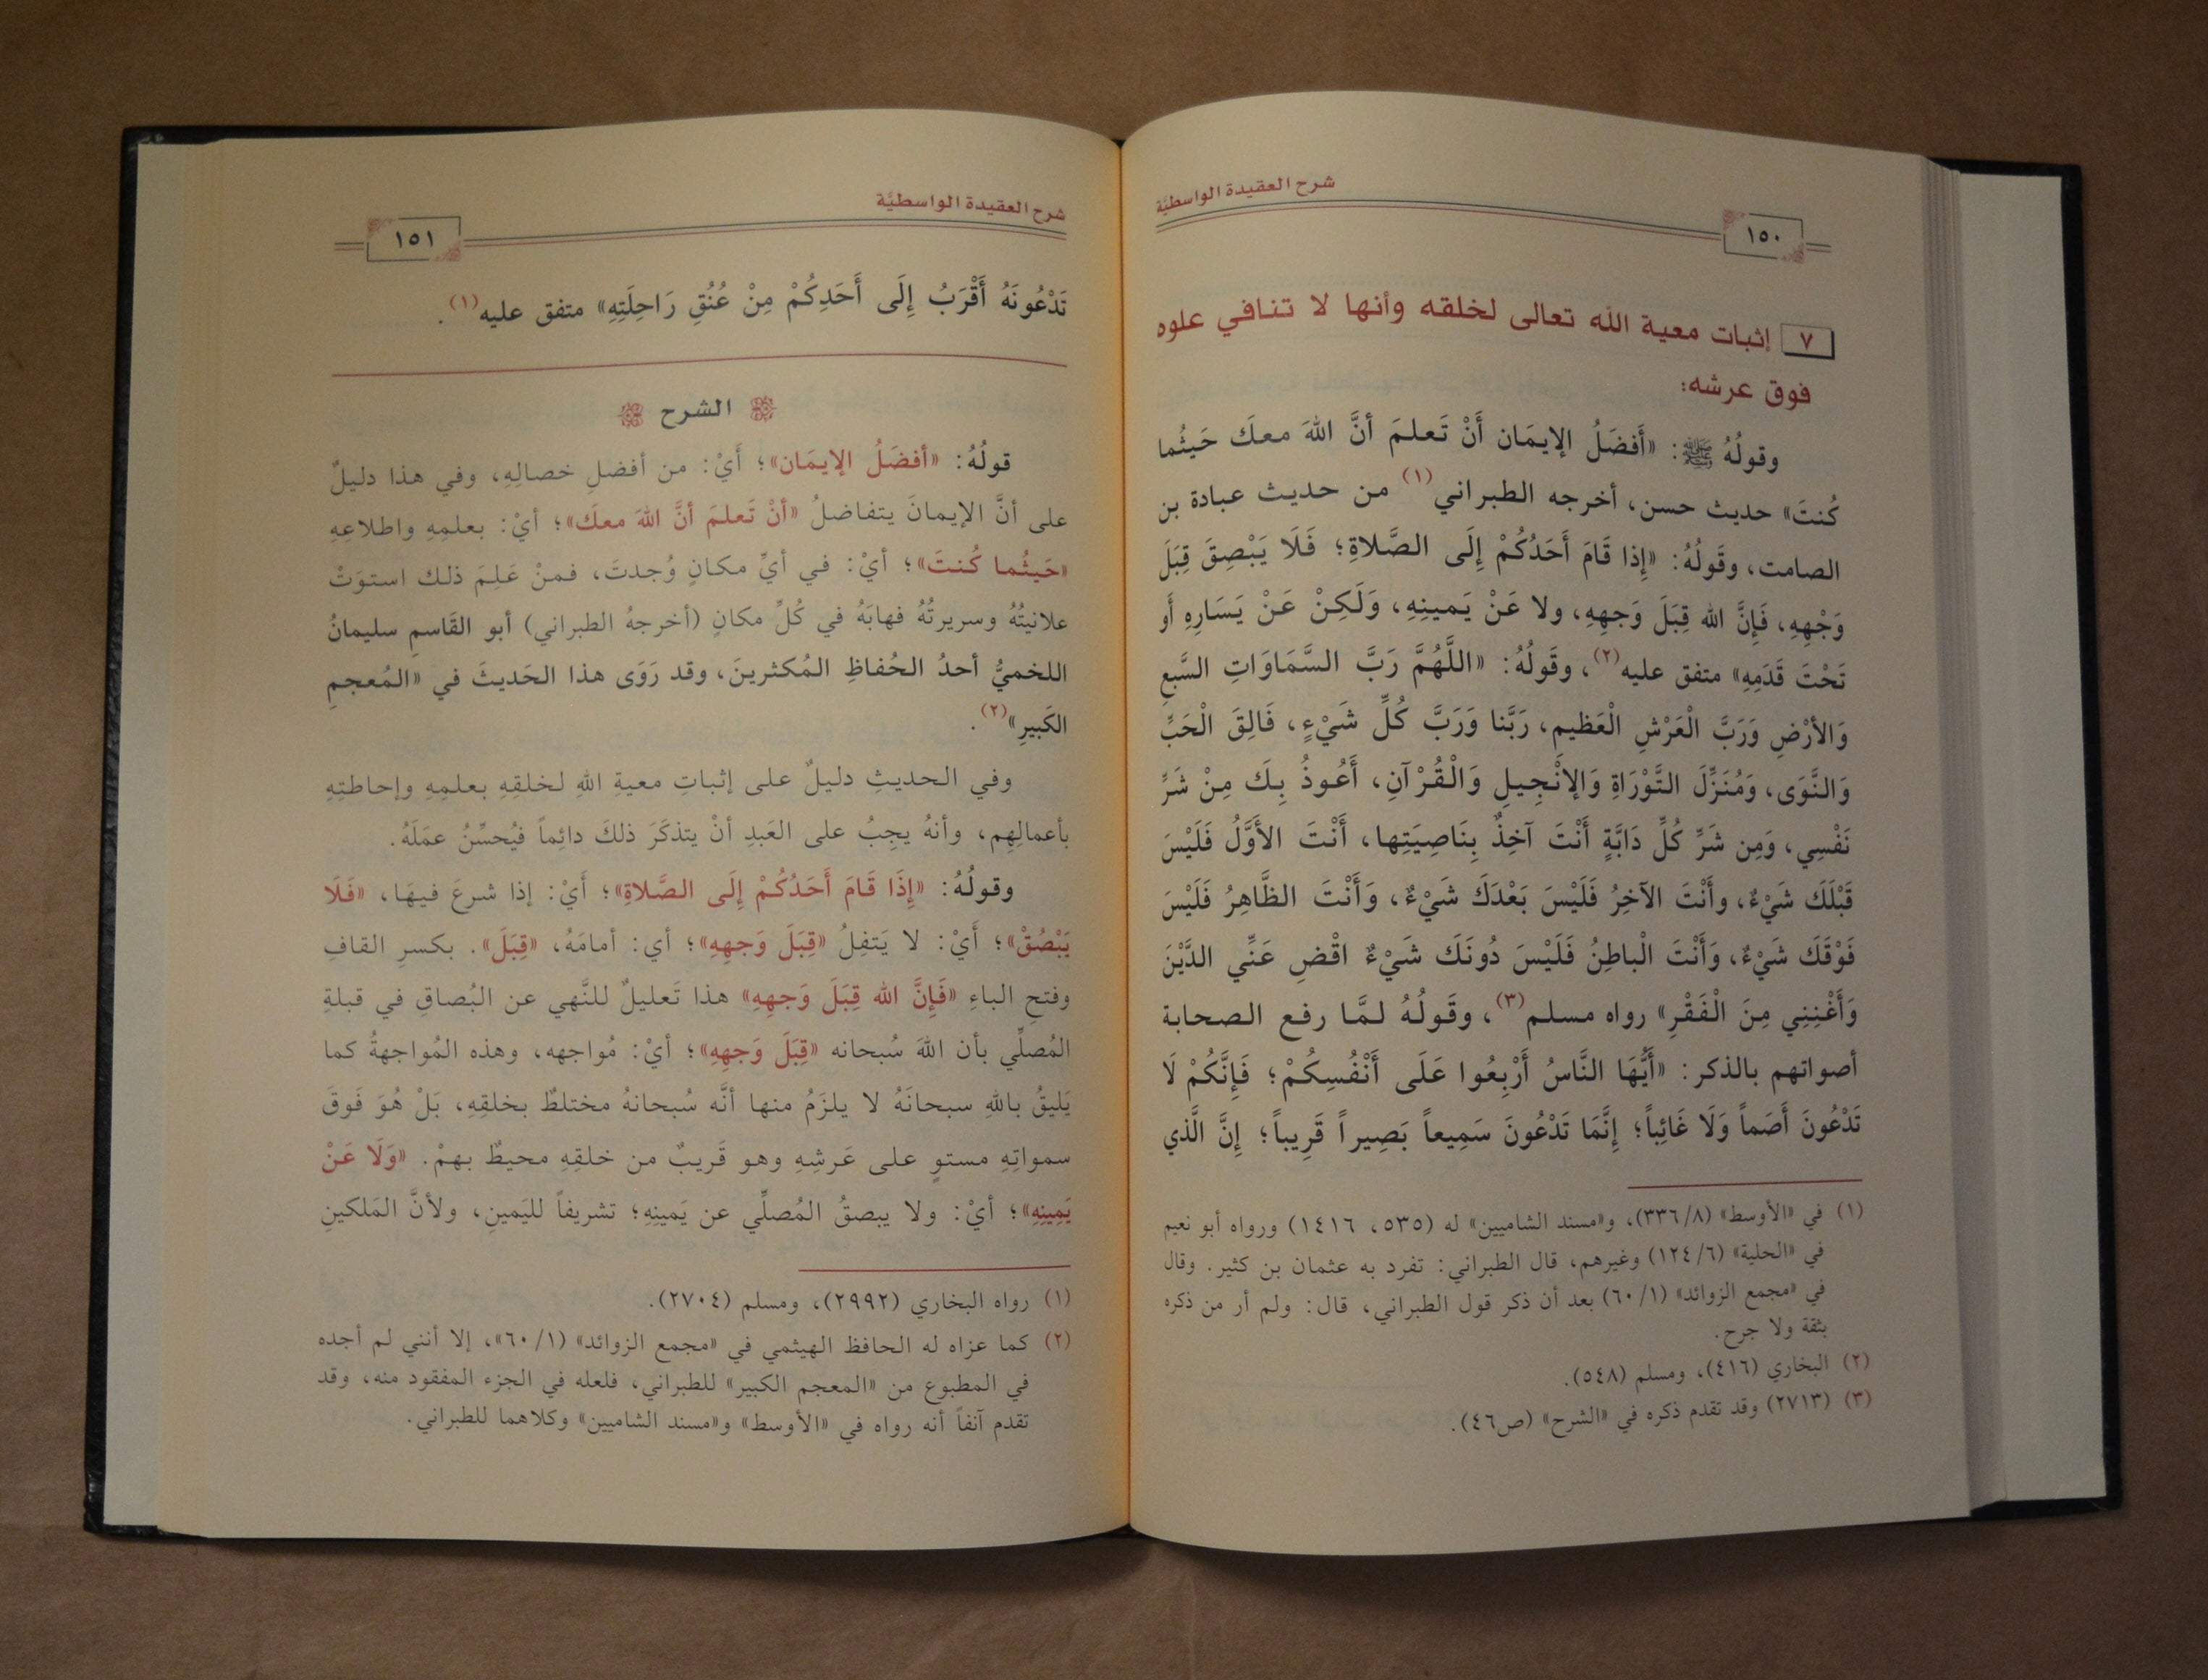 شرح العقيدة الواسطيَّة
١٥٠
٧ إثبات معية الله تعالى لخلقه وأنها لا تنافي علوه
فوق عرشه:
وقولُهُ ﷺ: «أَفضَلُ الإيمَان أَنْ تَعلمَ أنَّ اللهَ معكَ حَيثُما
كُنتَ» حديث حسن، أخرجه الطبراني(١) من حديث عبادة بن
الصامت، وقَولُهُ: «إِذا قَامَ أَحَدُكُمْ إِلَى الصَّلاةِ؛ فَلَا يَبْصِقَ قِبَلَ
وَجْهِهِ، فَإِنَّ الله قِبَلَ وَجهِهِ، ولا عَنْ يَمينِهِ، وَلَكِنْ عَنْ يَسَارِهِ أَو
تَحْتَ قَدَمِهِ» متفق عليه(٢)، وقَولُهُ: «اللَّهُمَّ رَبَّ السَّمَاوَاتِ السَّبعِ
وَالأرْضِ وَرَبَّ الْعَرْشِ الْعَظيمِ، رَبَّنا وَرَبَّ كُلِّ شَيْءٍ، فَالِقَ الْحَبِّ
وَالنَّوَى، وَمُنَزِّلَ التَّوْرَاةِ وَالإنْجِيلِ وَالْقُرْآنِ، أَعُوذُ بِكَ مِنْ شَرِّ
نَفْسِي، وَمِن شَرِّ كُلِّ دَابَّةٍ أَنْتَ آخِذٌ بِنَاصِيَتِها، أَنْتَ الأَوَّلُ فَلَيْسَ
قَبْلَكَ شَيْءٌ، وأَنْتَ الآخِرُ فَلَيْسَ بَعْدَكَ شَيْءٌ، وَأَنْتَ الظَّاهِرُ فَلَيْسَ
فَوْقَكَ شَيْءٌ، وَأَنْتَ الْباطِنُ فَلَيْسَ دُونَكَ شَيْءٌ اقْضِ عَنِّي الدَّيْنَ
وَأَغْنِنِي مِنَ الْفَقْرِ» رواه مسلم(٣)، وقَولُهُ لمَّا رفع الصحابة
أصواتهم بالذكر: «أَيُّهَا النَّاسُ أَرْبِعُوا عَلَى أَنْفُسِكُمْ؛ فَإِنَّكُمْ لَا
تَدْعُونَ أَصَماً وَلَا غَائِباً؛ إِنَّمَا تَدْعُونَ سَمِيعاً بَصِيراً قَرِيباً؛ إِنَّ الَّذي
(١) في «الأوسط» (٣٣٦/٨)، و«مسند الشاميين» له (٥٣٥، ١٤١٦) ورواه أبو نعيم
في «الحلية» (١٢٤/٦) وغيرهم، قال الطبراني: تفرد به عثمان بن كثير. وقال
في «مجمع الزوائد» (٦٠/١) بعد أن ذكر قول الطبراني، قال: ولم أر من ذكره
بثقة ولا جرح.
(٢) البخاري (٤١٦)، ومسلم (٥٤٨).
(٣) (٢٧١٣) وقد تقدم ذكره في «الشرح» (ص٤٦).
شرح العقيدة الواسطيَّة
١٥١
تَدْعُونَهُ أَقْرَبُ إِلَى أَحَدِكُمْ مِنْ عُنُقِ رَاحِلَتِهِ» متفق عليه(١).
الشرح
قولُهُ: «أفضَلُ الإيمَان»؛ أَيْ: من أفضلِ خصالِهِ، وفي هذا دليلٌ
على أنَّ الإيمانَ يتفاضلُ «أنْ تَعلمَ أنَّ اللهَ معكَ»؛ أيْ: بعلمِهِ واطلاعِهِ
«حَيثُما كُنتَ»؛ أيْ: في أيِّ مكانٍ وُجدتَ، فمنْ عَلِمَ ذلك استوَتْ
علانيتُهُ وسريرتُهُ فهابَهُ في كُلِّ مكانٍ (أخرجهُ الطبراني) أبو القَاسمِ سليمانُ
اللخميُّ أحدُ الحُفاظِ المُكثرينَ، وقد رَوَى هذا الحَديثَ في «المُعجمِ
الكَبيرِ»(٢).
وفي الحديثِ دليلٌ على إثباتِ معيةِ اللهِ لخلقِهِ بعلمِهِ وإحاطتِهِ
بأعمالِهِم، وأنهُ يجِبُ على العَبدِ أنْ يتذكَرَ ذلكَ دائِماً فيُحسِّنُ عمَلَهُ.
وقولُهُ: «إِذَا قَامَ أَحَدُكُمْ إِلَى الصَّلاةِ»؛ أَيْ: إذا شرعَ فيهَا، «فَلَا
يَبْصُقْ»؛ أَيْ: لا يَتفِلُ «قِبَلَ وَجهِهِ»؛ أي: أمامَهُ، «قِبَلَ». بكسرِ القافِ
وفتحِ الباءِ «فَإِنَّ الله قِبَلَ وَجهِهِ» هذا تَعليلٌ للنَّهي عن البُصاقِ في قبلةِ
المُصلِّي بأن اللهَ سُبحانه «قِبَلَ وَجهِهِ»؛ أيْ: مُواجهه، وهذه المُواجهةُ كما
يَليقُ باللهِ سبحانَهُ لا يلزَمُ منها أنَّه سُبحانهُ مختلطٌ بخلقِهِ، بَلْ هُوَ فَوقَ
سمواتِهِ مستوٍ على عَرشِهِ وهو قَريبٌ من خلقِهِ محيطٌ بهمْ. «وَلَا عَنْ
يَمِينِهِ»؛ أيْ: ولا يبصقُ المُصلِّي عن يَمينِهِ؛ تشريفاً لليَمينِ، ولأنَّ المَلكينِ
(١) رواه البخاري (٢٩٩٢)، ومسلم (٢٧٠٤).
(٢) كما عزاه له الحافظ الهيثمي في «مجمع الزوائد» (٦٠/١»، إلا أنني لم أجده
في المطبوع من «المعجم الكبير» للطبراني، فلعله في الجزء المفقود منه، وقد
تقدم آنفاً أنه رواه في «الأوسط» و«مسند الشاميين» وكلاهما للطبراني.